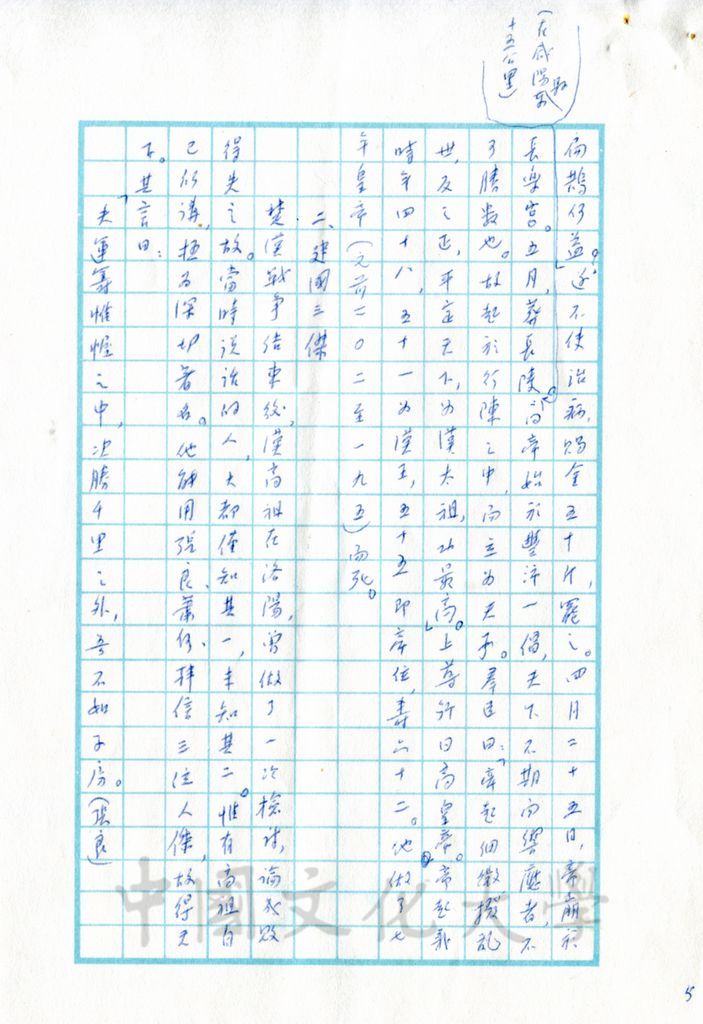 (在咸陽東
十五公里)
扁鵲何益。」遂不使治病,賜金五十斤,罷之。四月二十五日,帝崩於
長樂宮。五月,葬長陵。「高帝始於豐沛一倡,天下不期而響應者,不
可勝數也。故起於行陳之中,而立為天子。羣臣曰:「帝起細微,撥亂
世,反之正,平定天下,為漢太祖,功最高。」上尊號曰高皇帝。帝起義
時年四十八,五十一為漢王,五十五即帝位,壽六十二。他做了七
年皇帝(元前二〇二至一九五)而死。
二、建國三傑
楚漢戰爭結束後,漢高祖在洛陽,曾做了一次檢討,論成敗
得失之故。當時說話的人,大都僅知其一,未知其二。惟有高祖自
己所講,極為深切著名。他能用張良、蕭何、韓信三位人傑,故得天
下。其言曰:
「夫運籌帷幄之中,決勝千里之外,吾不如子房。(張良)
中國文化大學
5